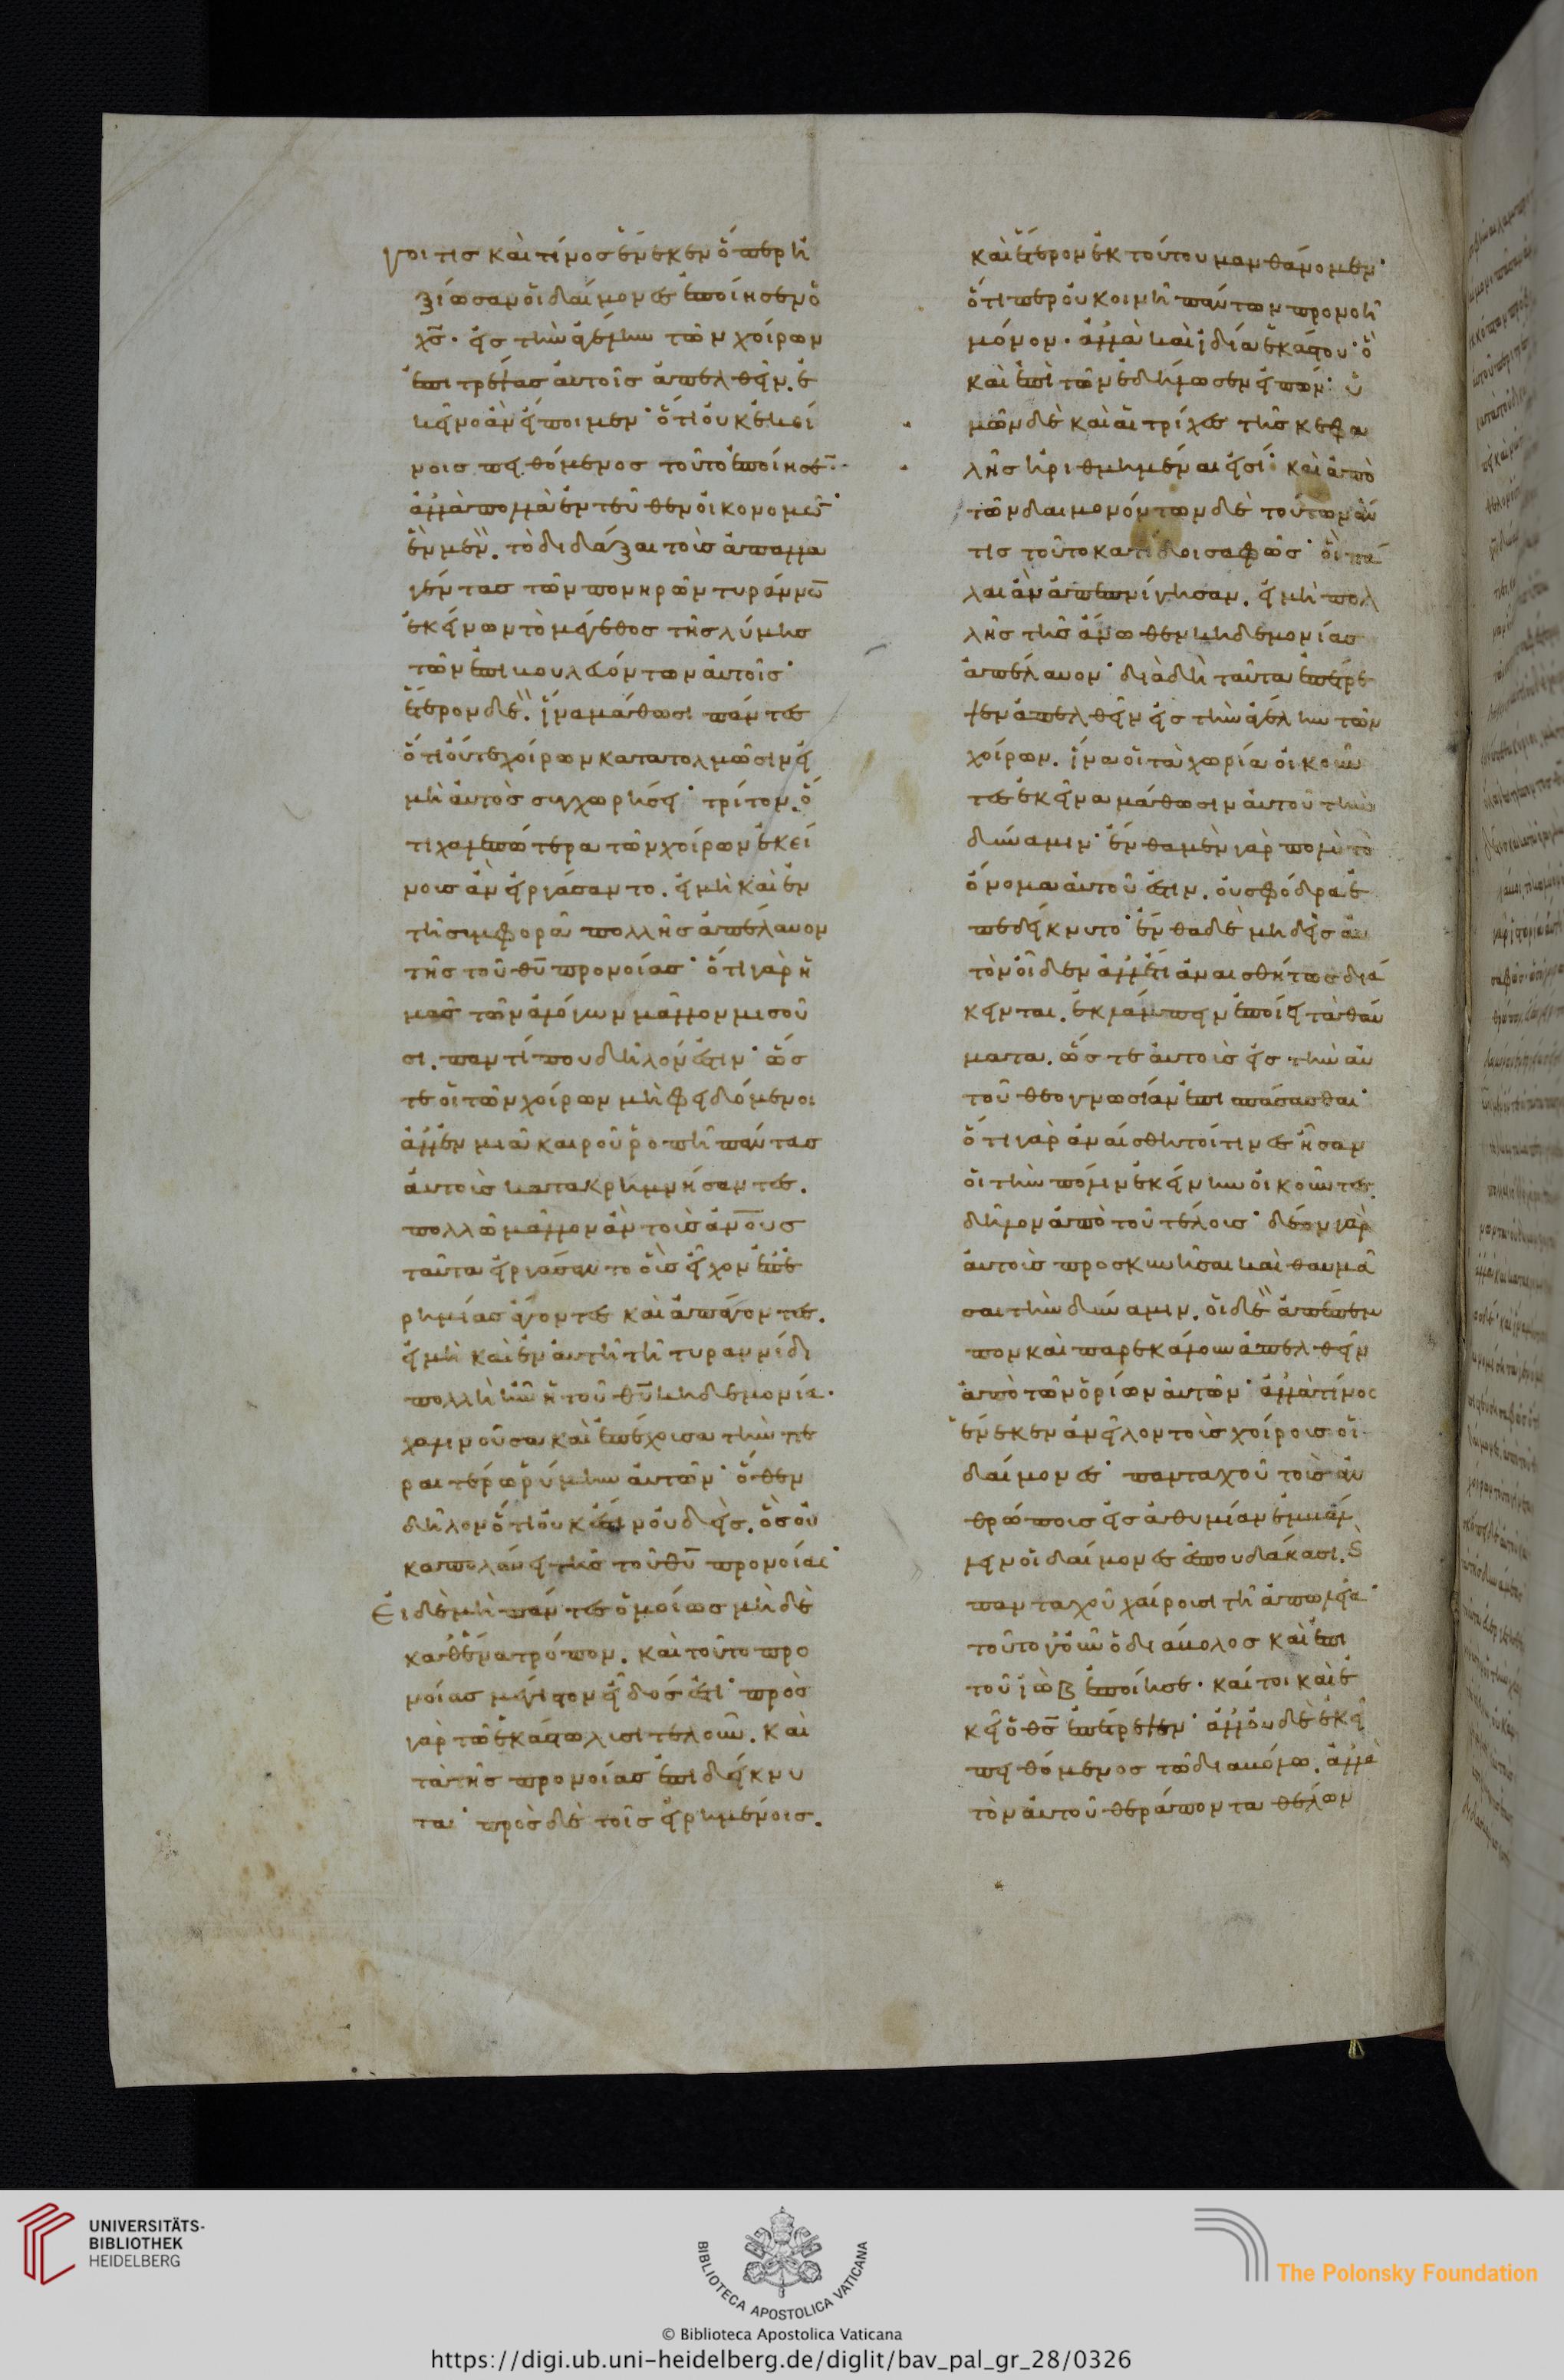 γοι τις καὶ τίνος ἕνεκεν ὅπερ ἠ
ξίωσαν οἱ δαίμονες ἐποίησεν ὁ
χ̅ς̅. εἰς τὴν ἀγέλην τῶν χοίρων
ἐπιτρέψας αὐτοῖς ἀπελθεῖν. ἐ
κεῖνο ἂν εἴποιμεν· ὅτι οὐκ ἐκεί
νοις πειθόμενος τοῦτο ἐποίησε̅·
ἀλλὰ πολλὰ ἐντεῦθεν οἰκονομῶ̅·
ἓν μὲν. τὸ διδάξαι τοὺς ἀπαλλα
γέντας τῶν πονηρῶν τυράννω̅
ἐκείνων τὸ μέγεθος τῆς λύμης
τῶν ἐπιβουλευόντων αὐτοῖς·
ἕτερον δὲ. ἵνα μάθωσι πάντες
ὅτι οὔτε χοίρων κατατολμῶσιν εἰ
μὴ αὐτὸς συγχωρήσει· τρίτον. ὅ
τι χαλεπώτερα τῶν χοίρων ἐκεί
νους ἂν εἰργάσαντο. εἰ μὴ καὶ ἐν
τῆ συμφορᾶ πολλῆς ἀπέλαυον
τῆς τοῦ θ̅υ̅ προνοίας· ὅτι γὰρ ἡ
μᾶς τῶν ἀλόγων μᾶλλον μισοῦ
σι. παντί που δῆλόν ἐστιν· ὥσ
τε οἱ τῶν χοίρων μὴ φειδόμενοι
ἀλλ' ἐν μιᾶ καιροῦ ῥοπῆ πάντας
αὐτοὺς κατακρημνήσαντες.
πολλῶ μᾶλλον ἂν τοὺς α̅ν̅ους
ταῦτα εἰργάσαντο οὓς εἶχον ἐπ' ἐ
ρημίας ἄγοντες καὶ ἀπάγοντες.
εἰ μὴ καὶ ἐν αὐτῆ τῆ τυραννίδι
πολλὴ ἦν ἡ τοῦ θ̅υ̅ κηδεμονία.
χαλινοῦσα καὶ ἐπέχουσα τὴν πε
ραιτέρω ῥύμην αὐτῶν· ὅθεν
δῆλον ὅτι οὐκ ἔστιν οὐδεὶς. ὃς οὐ
κ ἀπολαύει τῆς τοῦ θ̅υ̅ προνοίας·
Εἰ δὲ μὴ πάντες ὁμοίως μὴδὲ
καθ' ἕνα τρόπον. καὶ τοῦτο προ
νοίας μέγιστον εἶδός ἐστι· πρὸς
γὰρ τὸ ἑκάστω λυσιτελοῦν. καὶ
τὰ τῆς προνοίας ἐπιδείκνυ
ται· πρὸς δὲ τοῖς εἰρημένοις.
καὶ ἕτερον ἐκ τούτου μανθάνομεν·
ὅτιπερ οὐ κοινῆ πάντων προνοῆ
μόνον. ἀλλὰ καὶ ἰδία ἑκάστου· ὃ
καὶ ἐπὶ τῶν ἐδήλωσεν εἰπών· ὑ
μῶν δὲ καὶ αἱ τρίχες τῆς κεφα
λῆς ἠριθμημέναι εἰσί· καὶ ἀπὸ
τῶν δαιμονόντων δὲ τούτων ἄν
τις τοῦτο κατίδοι σαφῶς· οἳ πά
λαι ἂν ἀπεπνίγησαν. εἰ μὴ πολ
λῆς τῆς ἄνωθεν κηδεμονίας
ἀπέλαυον· διὰ δὴ ταῦτα ἐπέτρε
ψεν ἀπελθεῖν εἰς τὴν ἀγέλην τῶν
χοίρων. ἵνα οἱ τὰ χωρία οἰκοῦν
τες ἐκεῖνα μάθωσιν αὐτοῦ τὴν
δύναμιν· ἔνθα μὲν γὰρ πολὺ τὸ
ὄνομα αὐτοῦ ἐστιν. οὐ σφόδρα ἐ
πεδείκνυτο· ἔνθα δὲ μηδεὶς αὐ
τὸν οἶδεν ἀλλ' ἔτι ἀναισθήτως διά
κεινται. ἐκλάμπειν ἐποίει τὰ θαύ
ματα. ὥστε αὐτοὺς εἰς τὴν αὐ
τοῦ θεογνωσίαν ἐπισπάσασθαι·
ὅτι γὰρ ἀναίσθητοί τινες ἦσαν
οἱ τὴν πόλιν ἐκείνην οἰκοῦντες.
δῆλον ἀπὸ τοῦ τέλους· δέον γὰρ
αὐτοὺς προσκυνῆσαι καὶ θαυμᾶ
σαι τὴν δύναμιν. οἱ δὲ ἀπέπεμ
πον καὶ παρεκάλουν ἀπελθεῖν
ἀπὸ τῶν ὁρίων αὐτῶν· ἀλλὰ τίνος
ἕνεκεν ἀνεῖλον τοὺς χοίρους οἱ
δαίμονες· πανταχοῦ τοὺς ἀν
θρώπους εἰς ἀθυμίαν ἐμβάλ
λειν οἱ δαίμονες ἐσπουδάκασι. Ϛ
πανταχοῦ χαίρουσι τῆ ἀπωλεία·
τοῦτο γοῦν ὁ διάβολος καὶ ἐπὶ
τοῦ ἰὼβ ἐποίησε. καίτοι καὶ ἐ
κεῖ ὁ θ̅ς̅ ἐπέτρεψεν· ἀλλ' οὐδὲ ἐκεῖ
πειθόμενος τῶ διαβόλω. ἀλλὰ
τὸν αὐτοῦ θεράποντα θέλων
UNIVERSITÄTS-
BIBLIOTHEK
HEIDELBERG
BIBLIOTECA APOSTOLICA VATICANA
The Polonsky Foundation
© Biblioteca Apostolica Vaticana
https://digi.ub.uni-heidelberg.de/diglit/bav_pal_gr_28/0326